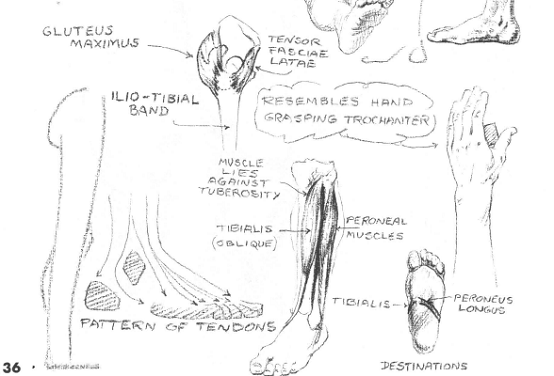 GLUTEUS
MAXIMUS
TENSOR
FASCIAE
LATAE
ILIO-TIBIAL
BAND
RESEMBLES HAND
GRASPING TROCHANTER
MUSCLE
LIES
AGAINST
TUBEROSITY
TIBIALIS
(OBLIQUE)
PERONEAL
MUSCLES
TIBIALIS
PERONEUS
LONGUS
PATTERN OF TENDONS
DESTINATIONS
36 •